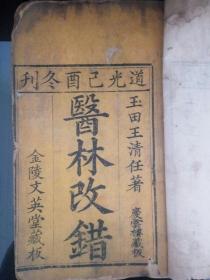 道光己酉冬刊
玉田王清任著
慶雲樓藏板
醫林改錯
金陵文英堂藏板